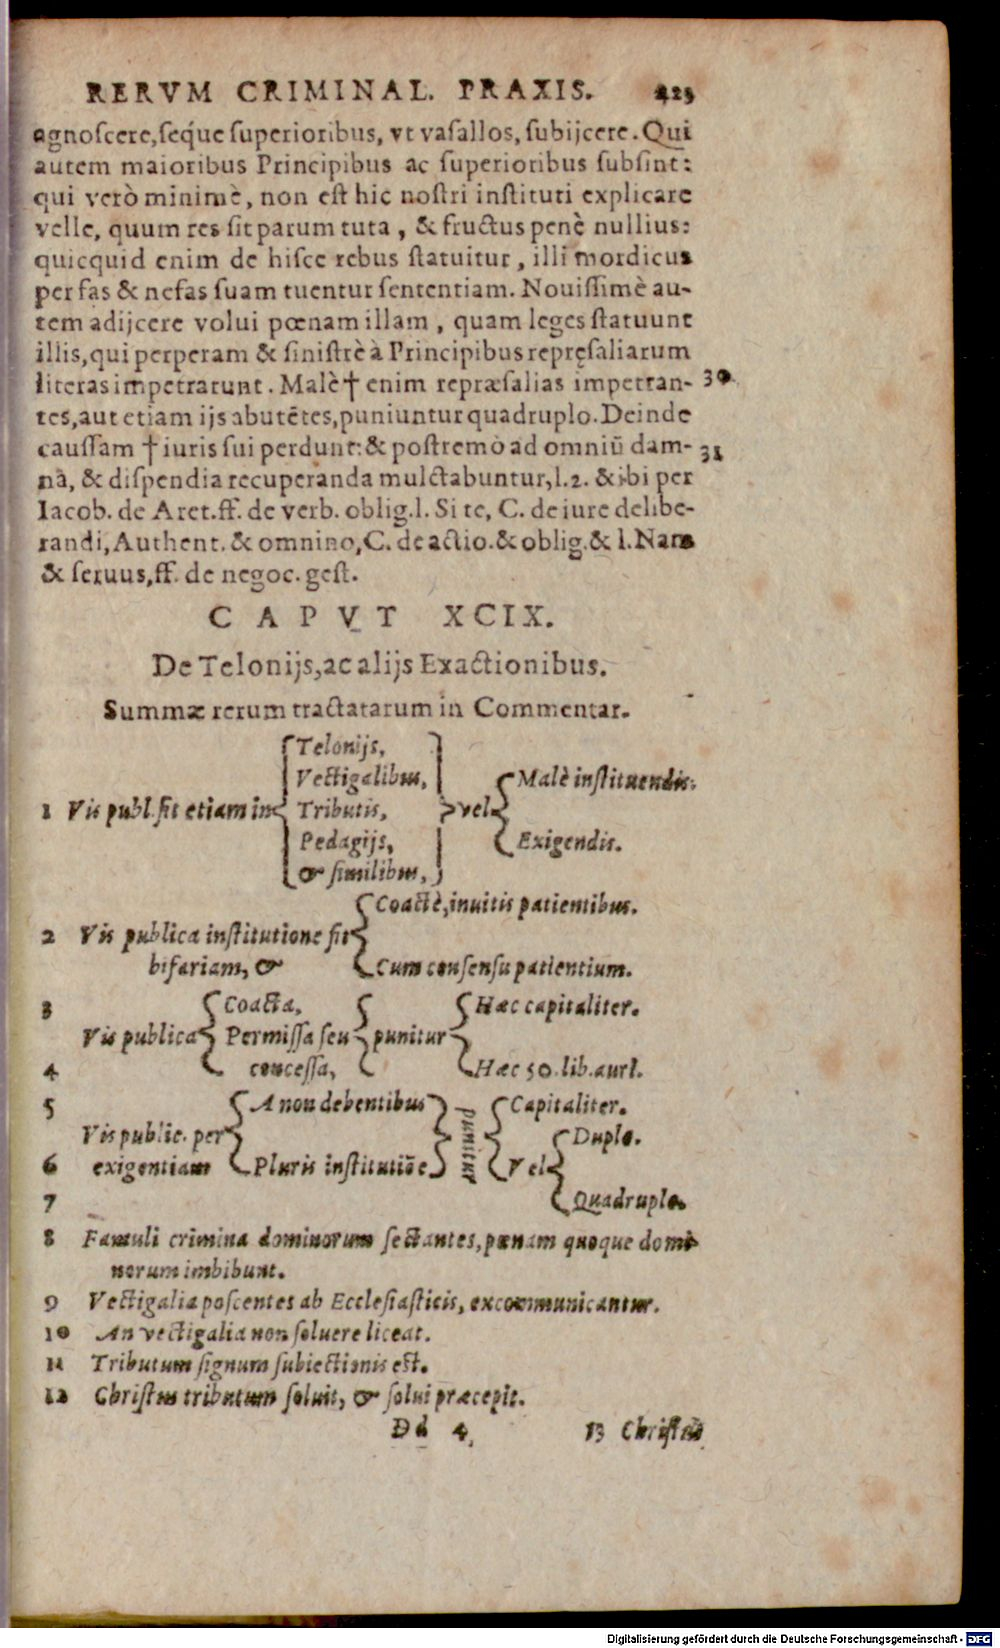 RERVM CRIMINAL. PRAXIS. 425
agnoscere, seque superioribus, vt vasallos, subijcere. Qui
autem maioribus Principibus ac superioribus subsint:
qui verò minimè, non est hic nostri instituti explicare
velle, quum res sit parum tuta, & fructus penè nullius:
quicquid enim de hisce rebus statuitur, illi mordicus
per fas & nefas suam tuentur sententiam. Nouissimè au-
tem adijcere volui pœnam illam, quam leges statuunt
illis, qui perperam & sinistrè à Principibus repręsaliarum
literas impetrarunt. Malè † enim repræsalias impetran- 30
tes, aut etiam ijs abutētes, puniuntur quadruplo. Deinde
caussam † iuris sui perdunt: & postremò ad omniū dam- 31
na, & dispendia recuperanda mulctabuntur, l.2. & ibi per
Iacob. de Aret. ff. de verb. oblig. l. Si te, C. de iure delibe-
randi, Authent. & omnino, C. de actio. & oblig. & l. Nam
& seruus, ff. de negoc. gest.
CAPVT XCIX.
De Telonijs, ac alijs Exactionibus.
Summæ rerum tractatarum in Commentar.
Telonijs,
Vectigalibus, Malè instituendis.
1 Vis publ. fit etiam in Tributis, vel
Pedagijs, Exigendis.
& similibus,
Coactè, inuitis patientibus.
2 Vis publica institutione fit
bifariam, & Cum consensu patientium.
3 Coacta, Hæc capitaliter.
Vis publica Permissa seu punitur
4 concessa, Hæc 50. lib. auri.
5 A non debentibus Capitaliter.
Vis public. per punitur Duplo.
6 exigentiam Pluris institutiōe Vel
7 Quadruplo.
8 Famuli crimina dominorum sectantes, pœnam quoque domi-
norum imbibunt.
9 Vectigalia poscentes ab Ecclesiasticis, excommunicantur.
10 An vectigalia non soluere liceat.
11 Tributum signum subiectionis est.
12 Christus tributum soluit, & solui præcepit.
Dd 4 13 Christus